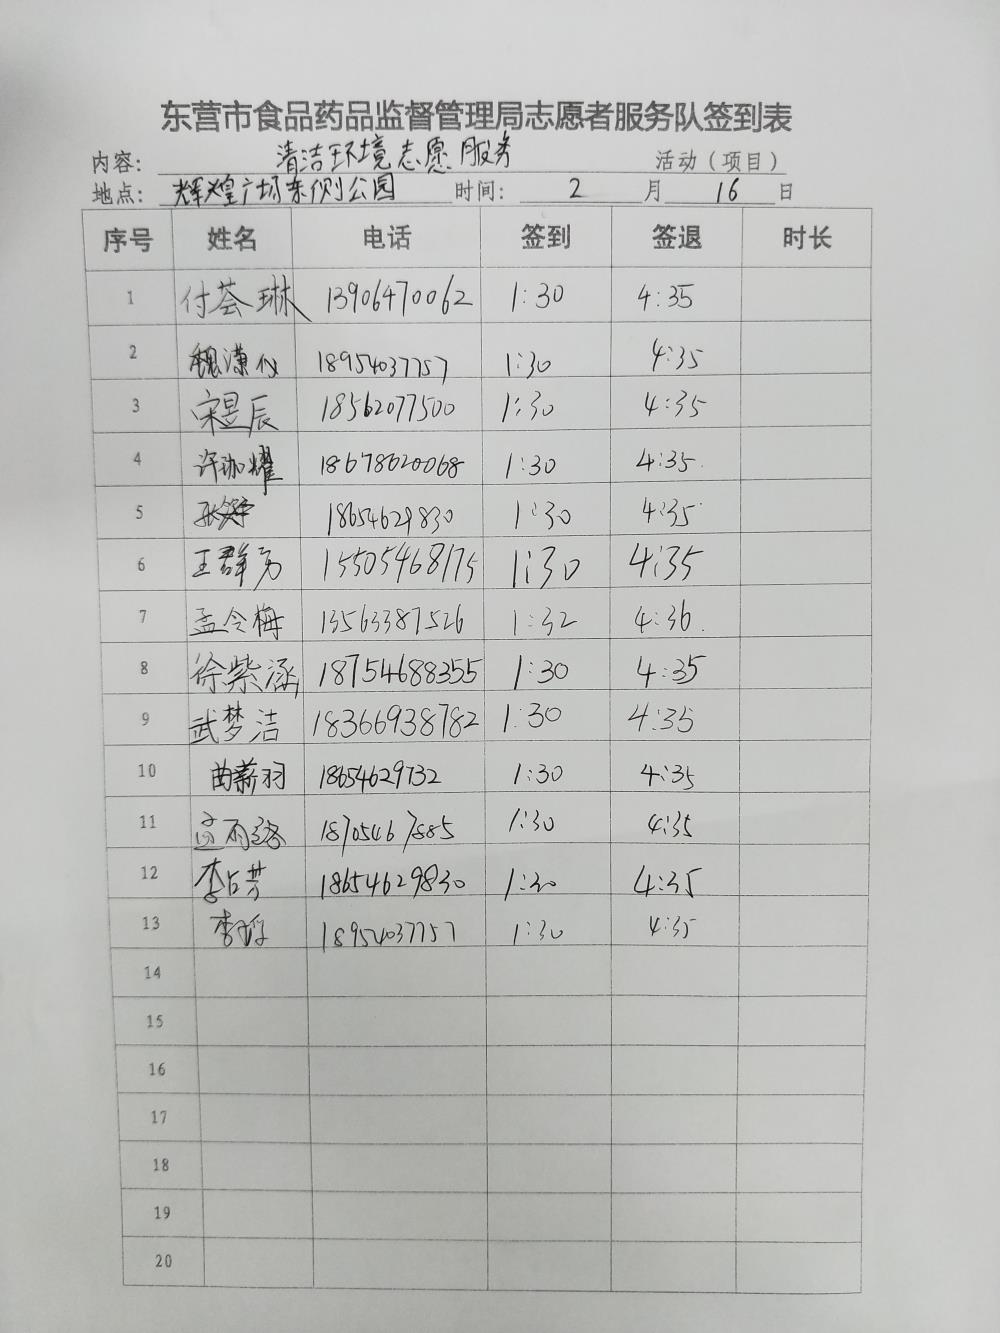 东营市食品药品监督管理局志愿者服务队签到表
内容: 清洁环境志愿服务 活动(项目)
地点: 辉煌广场东侧公园 时间: 2 月 16 日
序号 姓名 电话 签到 签退 时长
1 付荟琳 13906470062 1:30 4:35
2 魏潇仪 18954037757 1:30 4:35
3 宋昱辰 18562077500 1:30 4:35
4 许珈耀 18678620068 1:30 4:35
5 18654629830 1:30 4:35
6 王群勇 15505468175 1:30 4:35
7 孟令梅 13563387526 1:32 4:36
8 徐紫涵 18754688355 1:30 4:35
9 武梦洁 18366938782 1:30 4:35
10 曲薪羽 18654629732 1:30 4:35
11 18705467885 1:30 4:35
12 李占芳 18654629830 1:30 4:35
13 18954037757 1:30 4:35
14
15
16
17
18
19
20